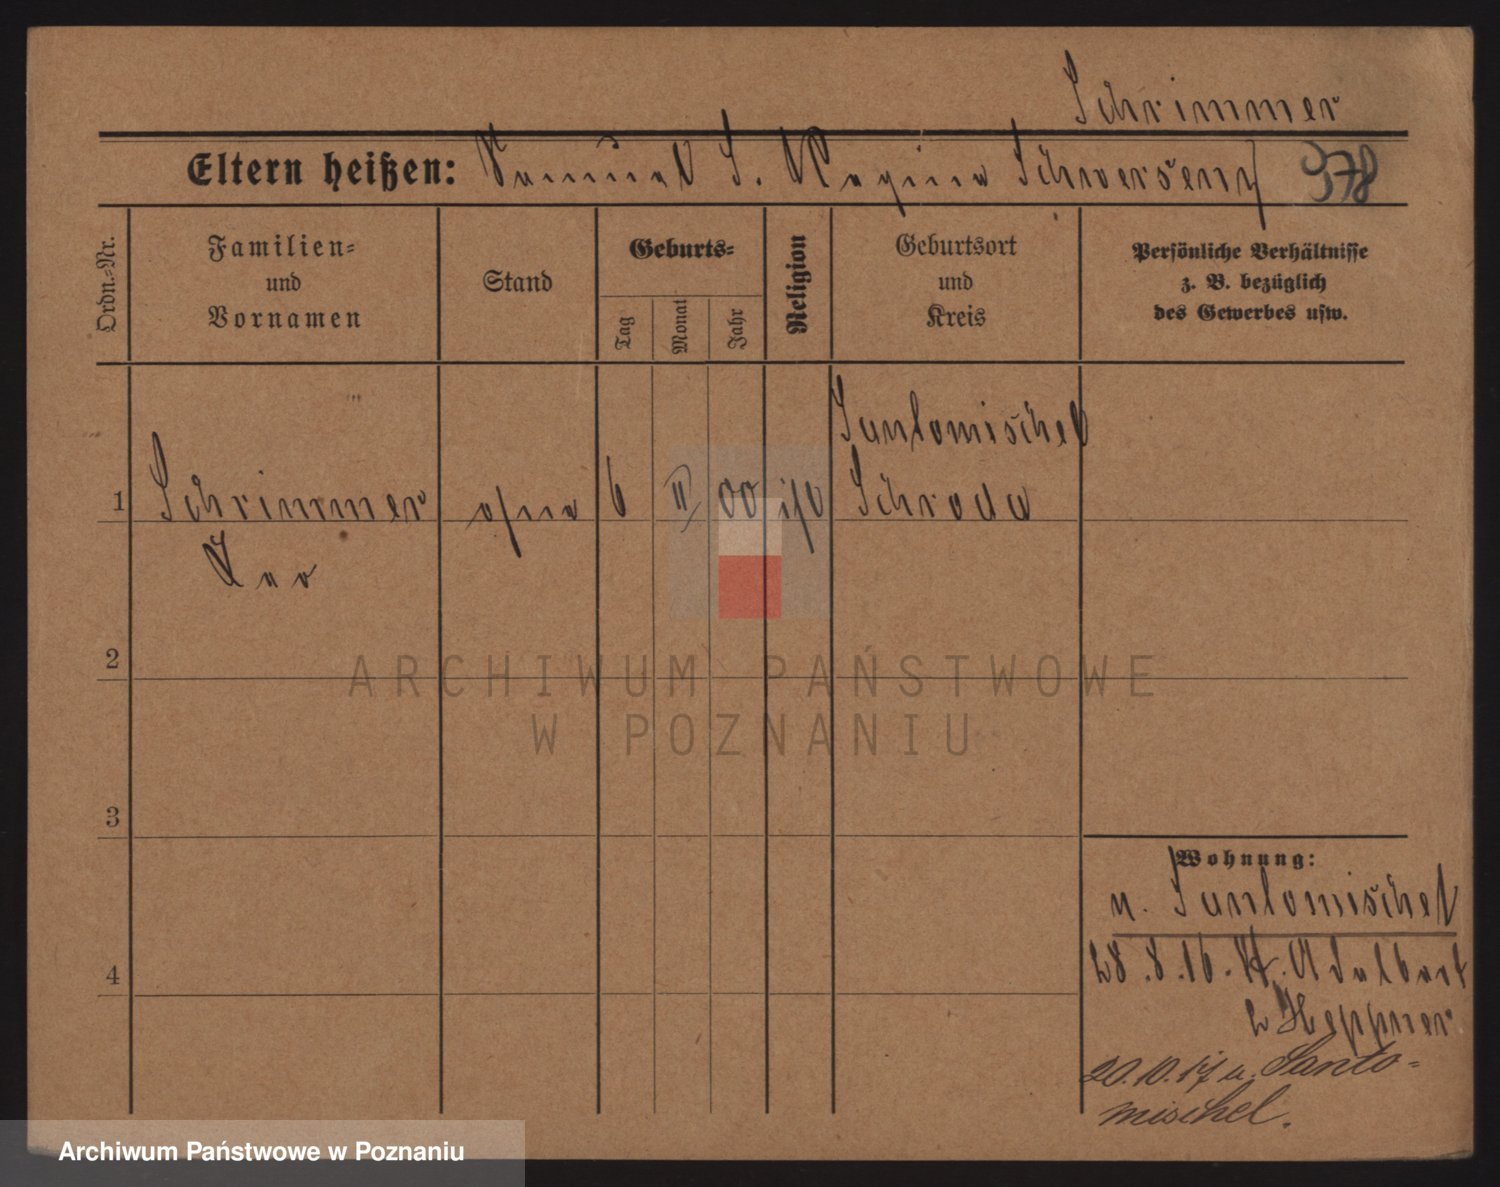 Schrimmer
Eltern heißen: Samuel S. Regina Schwersenz 378
Ordn.=Nr.
Familien=
und
Vornamen
Stand
Geburts=
Tag
Monat
Jahr
Religion
Geburtsort
und
Kreis
Persönliche Verhältnisse
z. B. bezüglich
des Gewerbes usw.
Santomischel
1 Schrimmer ohne 6 II 00 isr Schroda
Leo
2
ARCHIWUM PAŃSTWOWE
W POZNANIU
3
Wohnung:
n. Santomischel
4
28.8.16. St. Adalbert
b Heppner
20.10.17 u. Santo=
mischel.
Archiwum Państwowe w Poznaniu